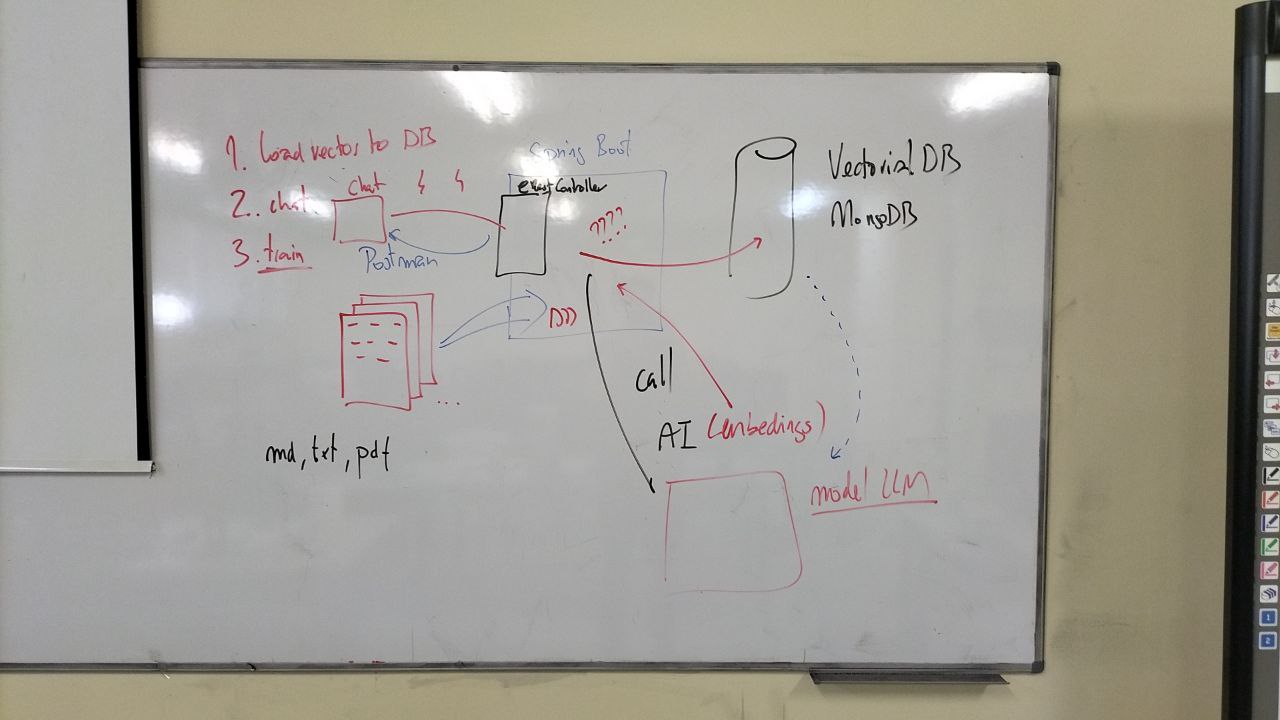 1. Load vector to DB
2.. chat.
3. train
chat
Postman
Spring Boot
Controller
????
DDD
Vectorial DB
MongoDB
call
AI (embedings)
model LLM
md, txt, pdf
...
1
2